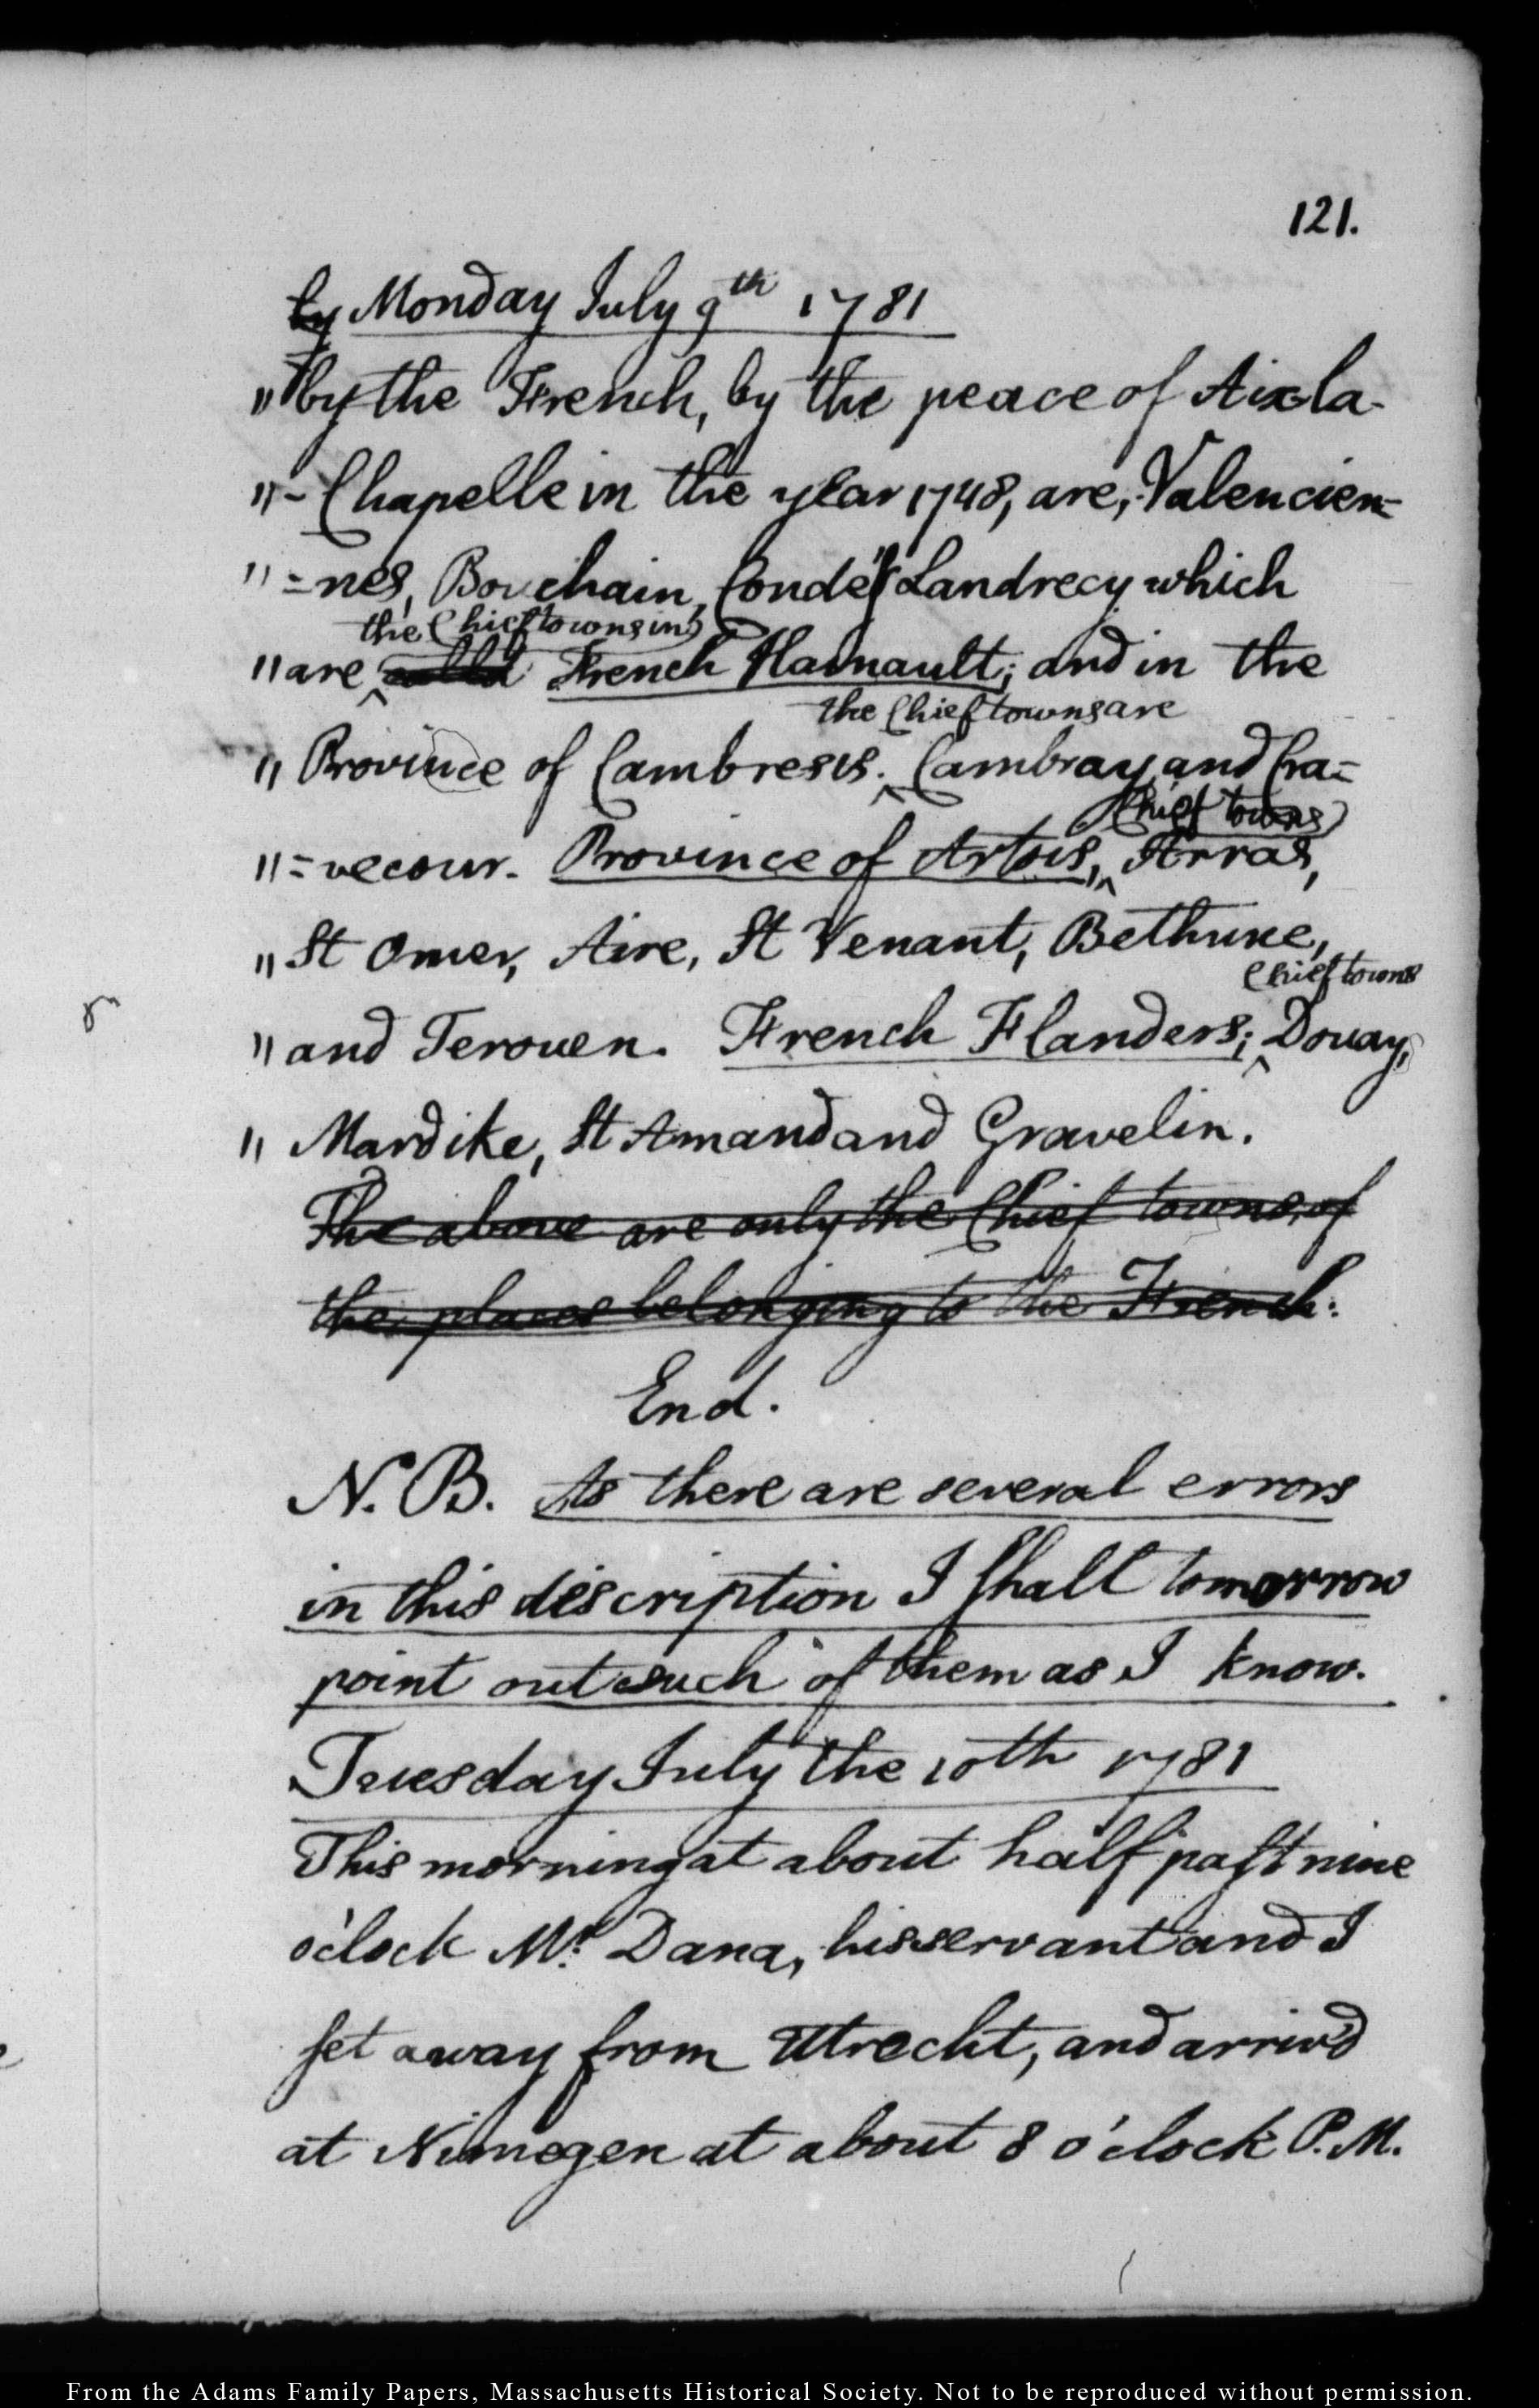 121.
by Monday July 9th 1781
"by the French, by the peace of Aix-la-
"-Chapelle in the year 1748, are, Valencien=
"=nes, Bouchain, Condé, & Landrecy which
the Chief towns in
"are called French Hainault; and in the
the Chief towns are
"Province of Cambresis. Cambray, and Cra=
Chief towns
"=vecour. Province of Artois, Arras,
"St Omer, Aire, St Venant, Bethune,
Chief towns
"and Terouen. French Flanders; Douay,
"Mardike, St Amand and Gravelin.
The above are only the Chief towns, of
the places belonging to the French.
End.
N.B. As there are several errors
in this déscription I shall tomorrow
point out such of them as I know.
Tuesday July the 10th 1781
This morning at about half past nine
o'clock Mr. Dana, his servant and I
set away from Utrecht, and arriv'd
at Nimegen at about 8 o'clock P.M.
From the Adams Family Papers, Massachusetts Historical Society. Not to be reproduced without permission.